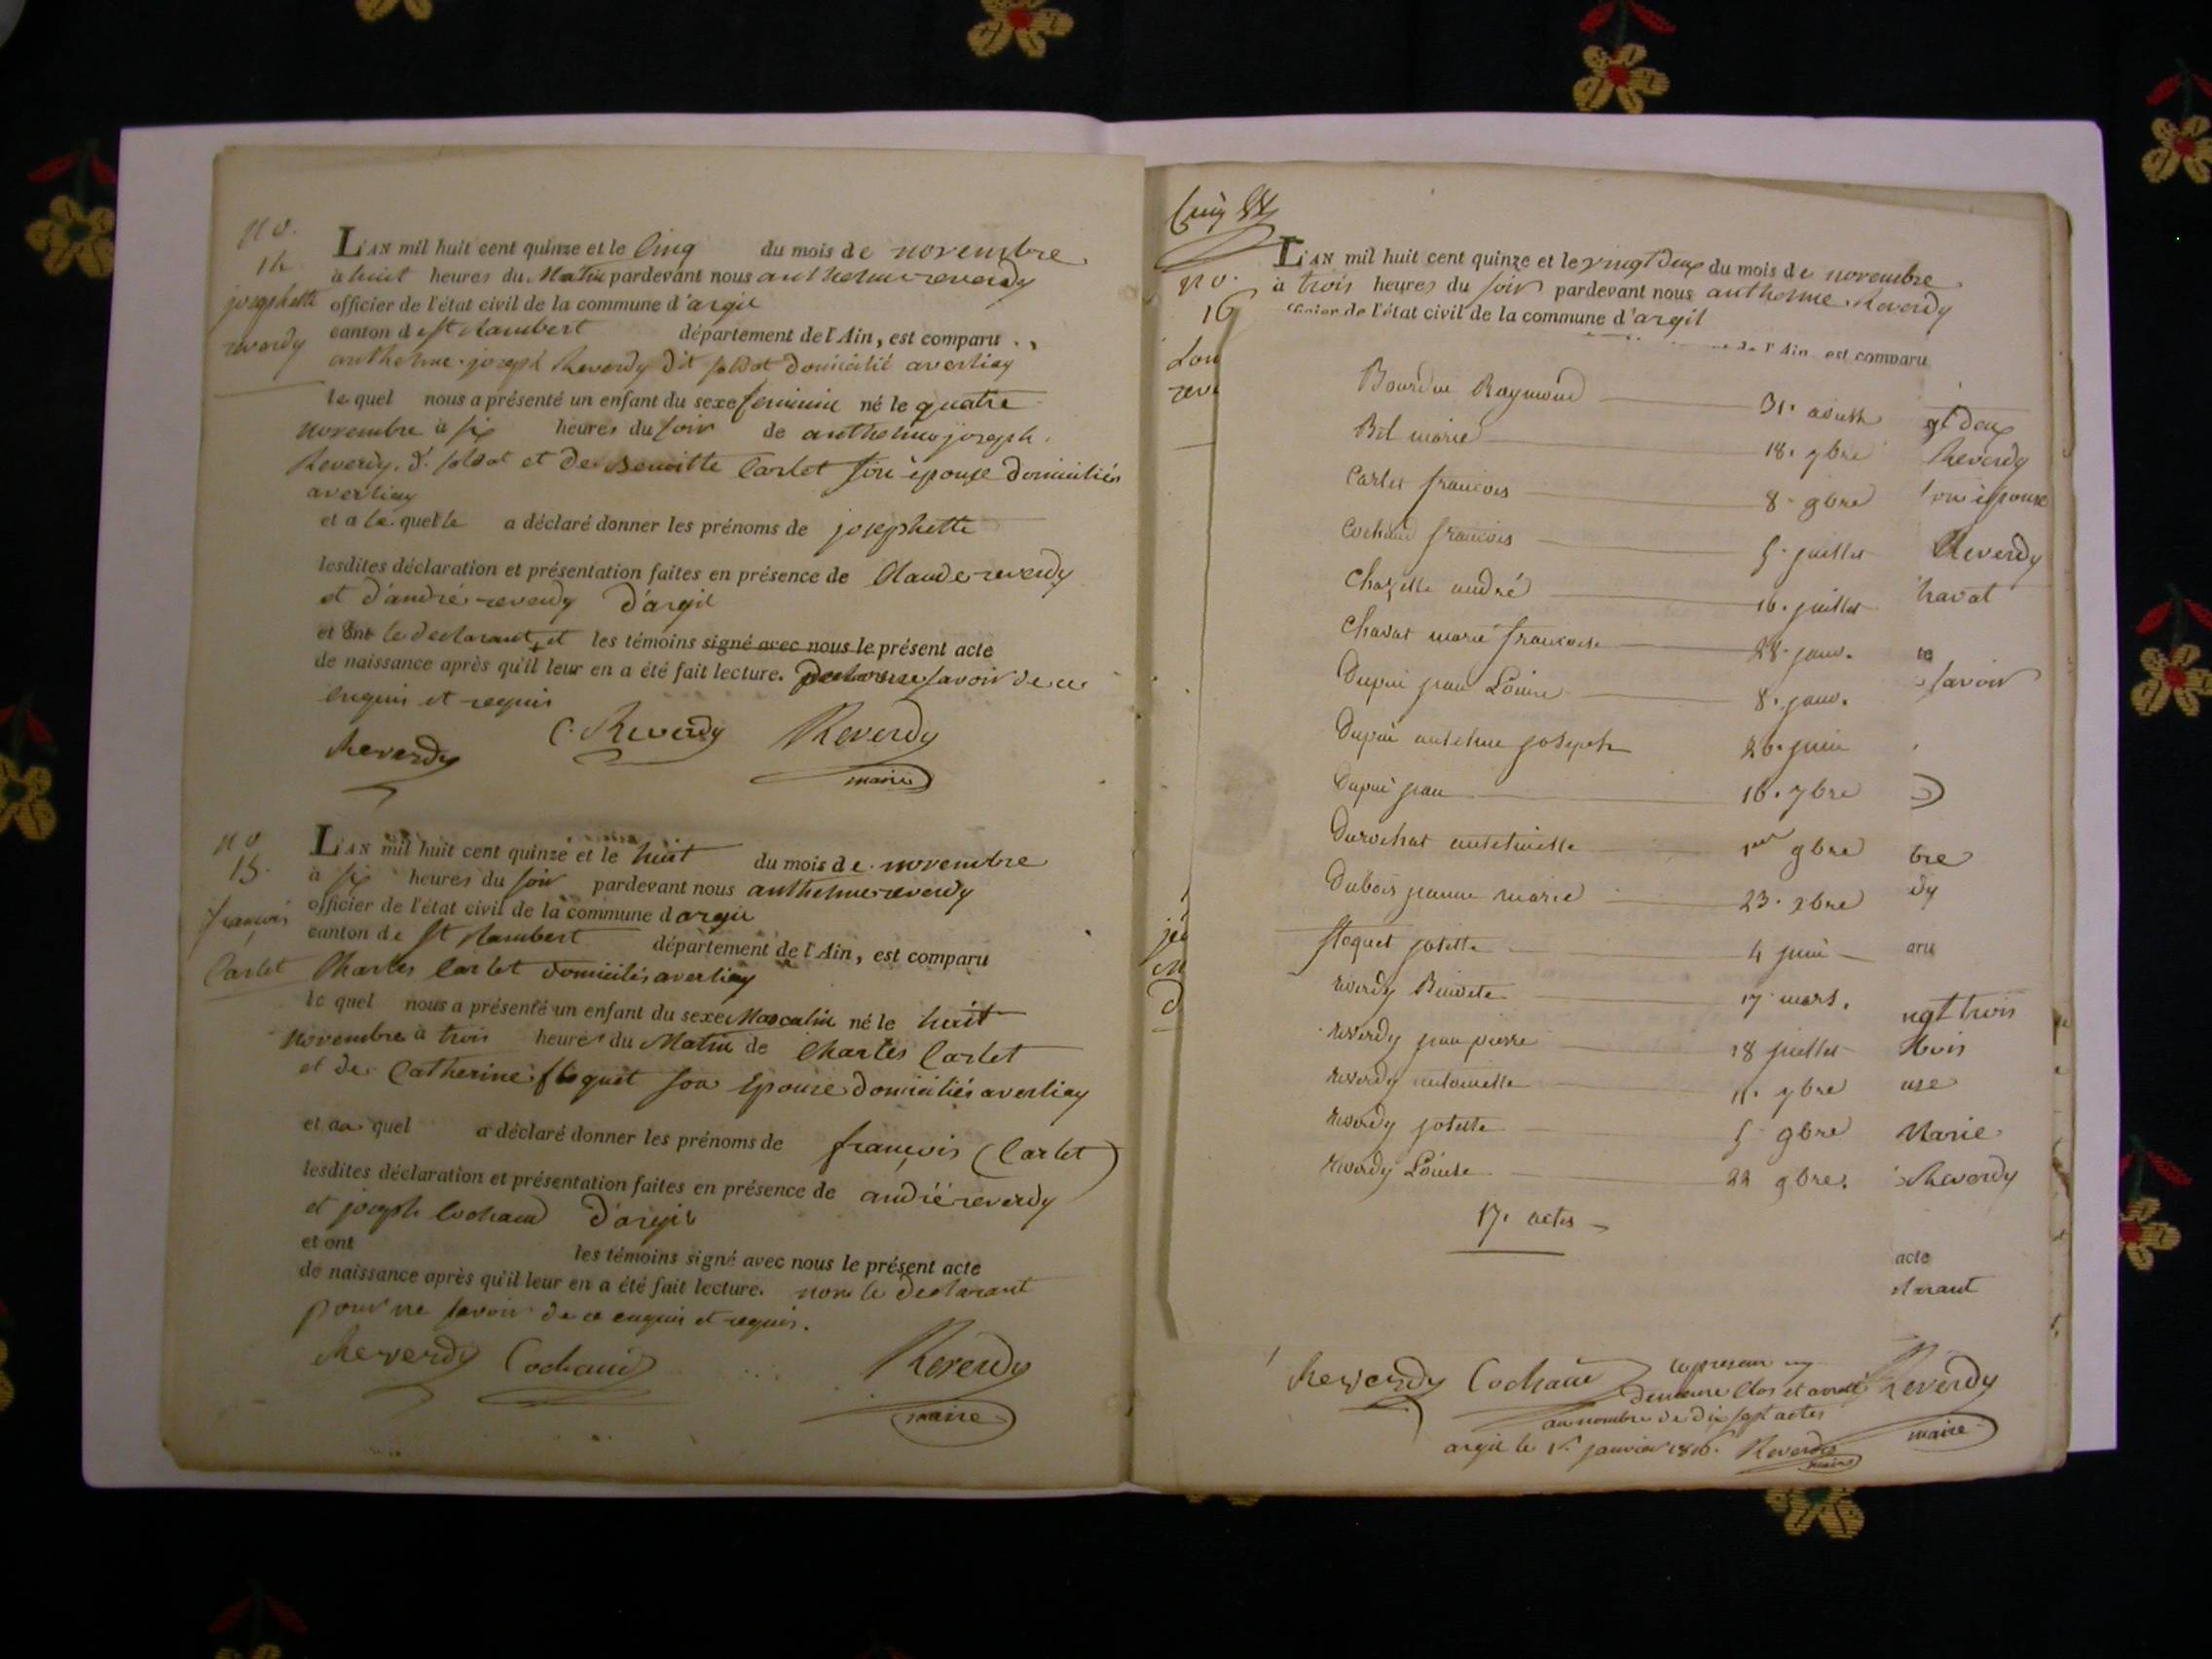 no.
14
josephette
reverdy
L'AN mil huit cent quinze et le Cinq du mois de novembre
à huit heures du Matin pardevant nous anthelme reverdy
officier de l'état civil de la commune d'argil
canton de St Rambert département de l'Ain, est comparu
anthelme joseph Reverdy dit soldat domicilié averliay
le quel nous a présenté un enfant du sexe feminin né le quatre
novembre à six heures du soir de anthelme joseph
Reverdy, d. soldat et de Benoitte Carlet son épouse domiciliés
averliay
et a la quelle a déclaré donner les prénoms de josephette
lesdites déclaration et présentation faites en présence de Claude reverdy
et d'andré reverdy d'argil
et ont le declarant et les témoins signé avec nous le présent acte
de naissance après qu'il leur en a été fait lecture. savoir de ce
enquis et requis
Reverdy C. Reverdy Reverdy
maire
no
15.
françois
Carlet
L'AN mil huit cent quinze et le huit du mois de novembre
à six heures du soir pardevant nous anthelme reverdy
officier de l'état civil de la commune d'argil
canton de St Rambert département de l'Ain, est comparu
Charles Carlet domiciliés averliay
le quel nous a présenté un enfant du sexe Masculin né le huit
novembre à trois heures du Matin de Charles Carlet
et de Catherine floquet son Epouse domiciliés averliay
et au quel a déclaré donner les prénoms de françois (Carlet)
lesdites déclaration et présentation faites en présence de andré reverdy
et joseph Cochaud d'argil
et ont les témoins signé avec nous le présent acte
de naissance après qu'il leur en a été fait lecture. non le declarant
pour ne savoir de ce enquis et requis.
Reverdy Cochaud Reverdy
maire
no.
16
L'AN mil huit cent quinze et le vingt deux du mois de novembre
à trois heures du soir pardevant nous anthelme Reverdy
officier de l'état civil de la commune d'argil
de l'Ain est comparu
Bourdin Raymond 31. aoust
Bel marie 18. 7bre
Carlet francois 8. 9bre
Cochaud francois 5. juillet
Chazelle andré 16. juillet
Chavat marie francoise 28. janv.
Dupui jean Louise 8. janv.
Dupui antelme joseph 26. juin
Dupui jean 16. 7bre
Durochat antelmette 1er 9bre
Dubois jeanne marie 23. xbre
floquet josette 4 juin
reverdy Benoite 17 mars.
reverdy jean pierre 18 juillet
reverdy antoinette 11. 7bre
reverdy josette 5 9bre
reverdy Louise 22 9bre.
17. actes
gt deux
Reverdy
son épouse
Reverdy
havat
te
savoir
bre
dy
aru
ngt trois
use
Marie
Reverdy
acte
clarant
Reverdy Cochaud Reverdy
maire
le present
demeure Clos et arreté
au nombre de dix sept actes
argil le 1r. janvier 1816. Reverdy
maire